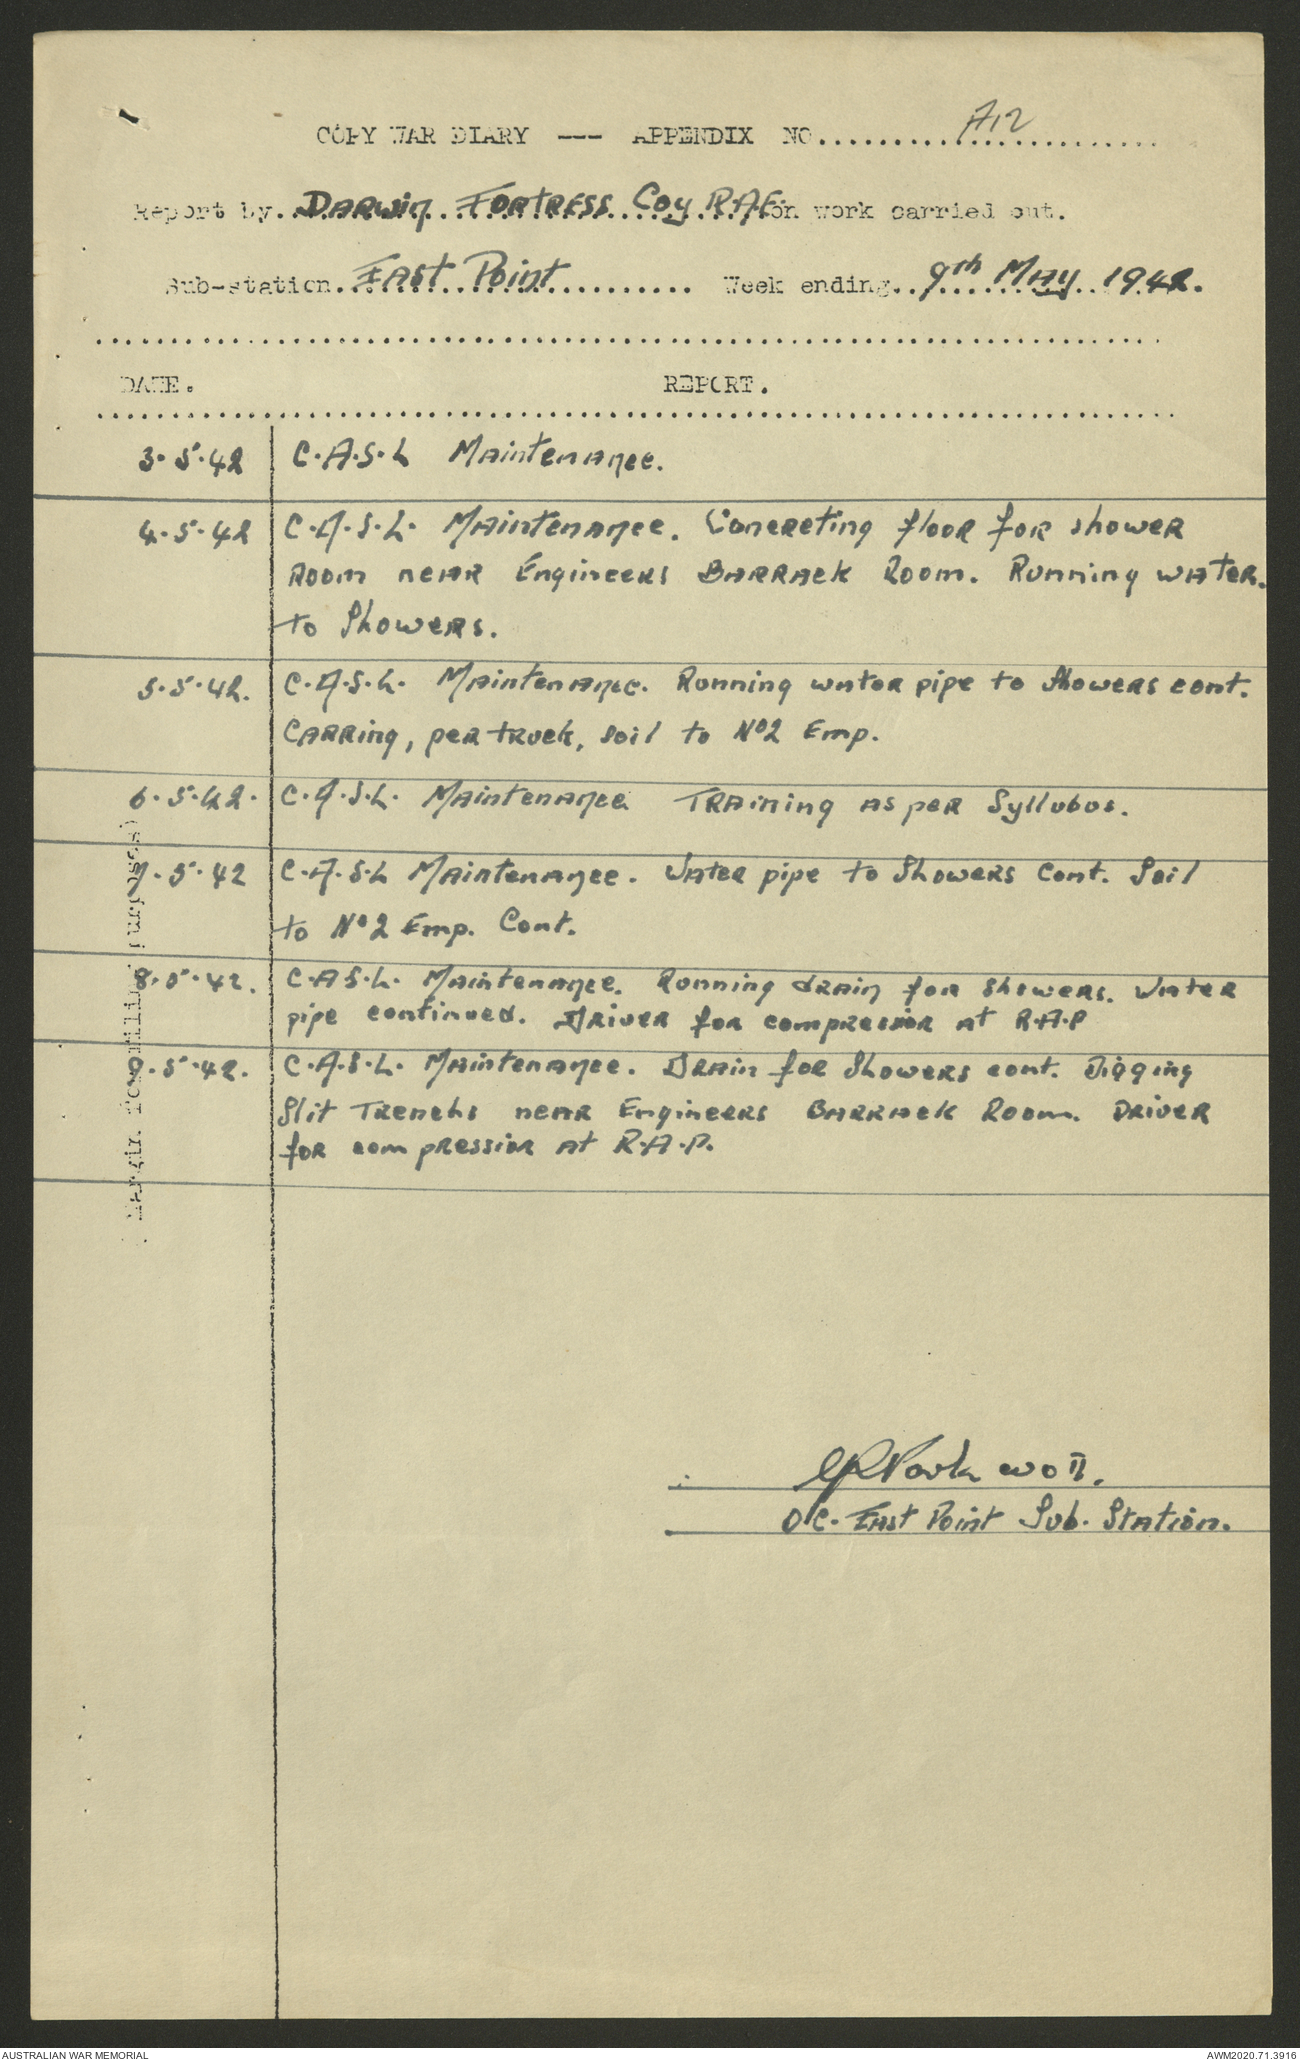 COPY WAR DIARY --- APPENDIX NO. A12
Report by Darwin Fortress Coy R.A.E on work carried out.
Sub-station East Point Week ending 9th May 1942.
DATE. REPORT.
3.5.42 C.A.S.L Maintenance.
4.5.42 C.A.S.L. Maintenance. Concreting floor for shower
Room near Engineers Barrack Room. Running water.
to Showers.
5.5.42. C.A.S.L. Maintenance. Running water pipe to Showers cont.
Carring, per truck, soil to No2 Emp.
6.5.42. C.A.S.L. Maintenance Training as per Syllubus.
7.5.42 C.A.S.L Maintenance. Water pipe to Showers Cont. Soil
to No2 Emp. Cont.
8.5.42. C.A.S.L. Maintenance. Running drain for showers. Water
pipe continued. Driver for compressior at R.A.P
9.5.42. C.A.S.L. Maintenance. Drain for Showers cont. Digging
Slit Trenchs near Engineers Barrack Room. Driver
for compressior at R.A.P.
(Margin for filing purposes)
WO II.
O/C. East Point Sub. Station.
AUSTRALIAN WAR MEMORIAL AWM2020.71.3916